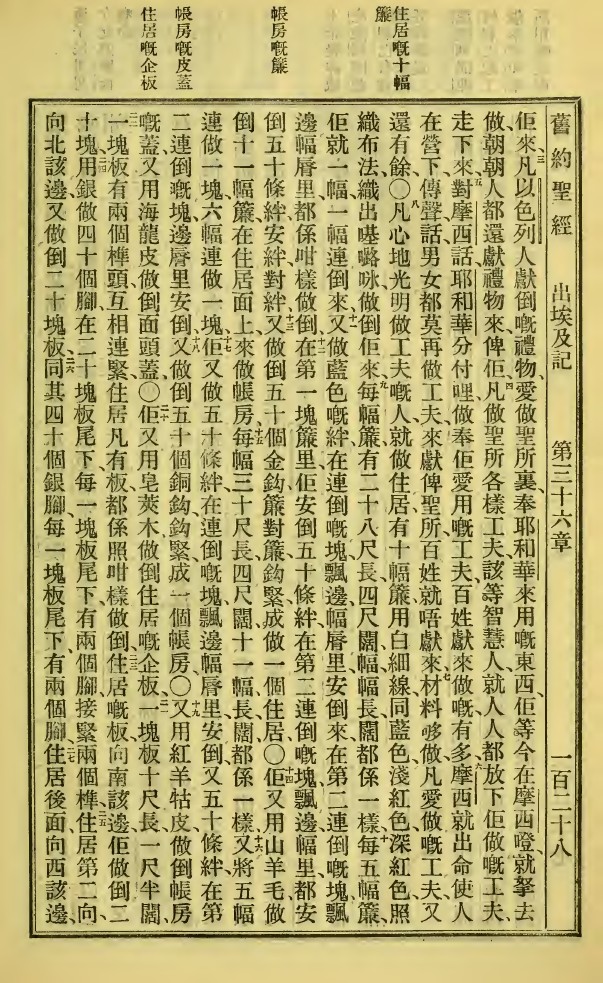 舊約聖經　出埃及記　第三十六章　一百二十八
住居嘅十幅
簾
帳房嘅簾
帳房嘅皮蓋
住居嘅企板
佢來、三凡以色列人獻倒嘅禮物、愛做聖所裏、奉耶和華來用嘅東西、佢等今在摩西噔、就拏去
做、朝朝人都還獻禮物來俾佢、四凡做聖所各樣工夫該等智慧人、就人人都放下佢做嘅工夫、
走下來、五對摩西話、耶和華分付哩做奉佢愛用嘅工夫、百姓獻來做嘅有多、六摩西就出命、使人
在營下傳聲話、男女都莫再做工夫來獻俾聖所、百姓就唔獻來、七材料够做凡愛做嘅工夫、又
還有餘〇八凡心地光明做工夫嘅人、就做住居有十幅簾、用白細線、同藍色淺紅色深紅色、照
織布法織出嚕咏、做倒佢來、九每幅簾有二十八尺長、四尺闊、幅幅長闊都係一樣、十每五幅簾、
佢就一幅一幅連倒來、十一又做藍色嘅絆、在連倒嘅塊飄邊幅唇里安倒來、在第二連倒嘅塊飄
邊幅唇里、都係咁樣做倒、十二在第一塊簾里、佢安倒五十條絆、在第二連倒嘅塊飄邊幅里、都安
倒五十條絆、安絆對絆、十三又做倒五十個金鈎、簾對簾鈎緊、成做一個住居〇十四佢又用山羊毛做
倒十一幅簾、在住居面上來做帳房、十五每幅三十尺長、四尺闊、十一幅長闊都係一樣、十六又將五幅
連做一塊、六幅連做一塊、十七佢又做五十條絆、在連倒嘅塊飄邊幅唇里安倒、又五十條絆、在第
二連倒嘅塊邊唇里安倒、十八又做倒五十個銅鈎、鈎緊成一個帳房〇十九又用紅羊牯皮做倒帳房
嘅蓋、又用海龍皮做倒面頭蓋〇二十佢又用皂莢木做倒住居嘅企板、二一一塊板十尺長、一尺半闊、
二二一塊板有兩個榫頭、互相連緊、住居凡有板、都係照咁樣做倒、二三住居嘅板、向南該邊、佢做倒二
十塊、二四用銀做四十個腳、在二十塊板尾下、每一塊板尾下有兩個腳、接緊兩個榫、二五住居第二向、
向北該邊、又做倒二十塊板、二六同其四十個銀腳、每一塊板尾下有兩個腳、二七住居後面、向西該邊、